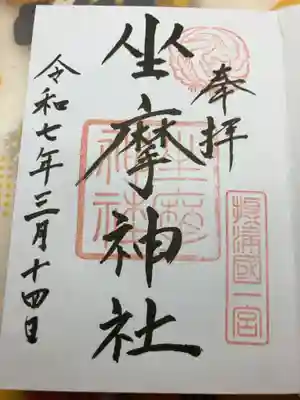 奉拝
摂津國一宮
坐摩神社
坐摩神社
令和七年三月十四日